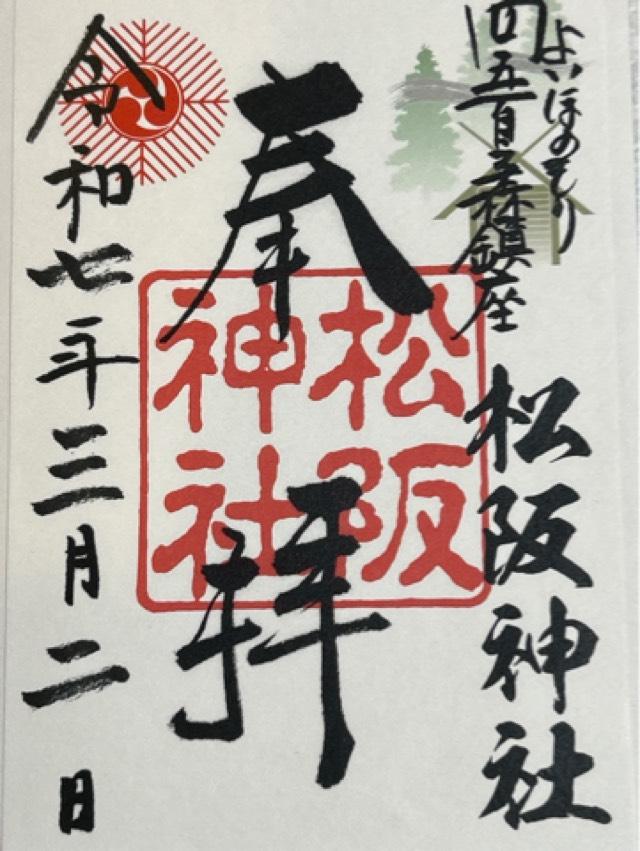 よいほのもり
四五百森鎮座
松阪神社
奉拝
松阪
神社
令和七年三月二日